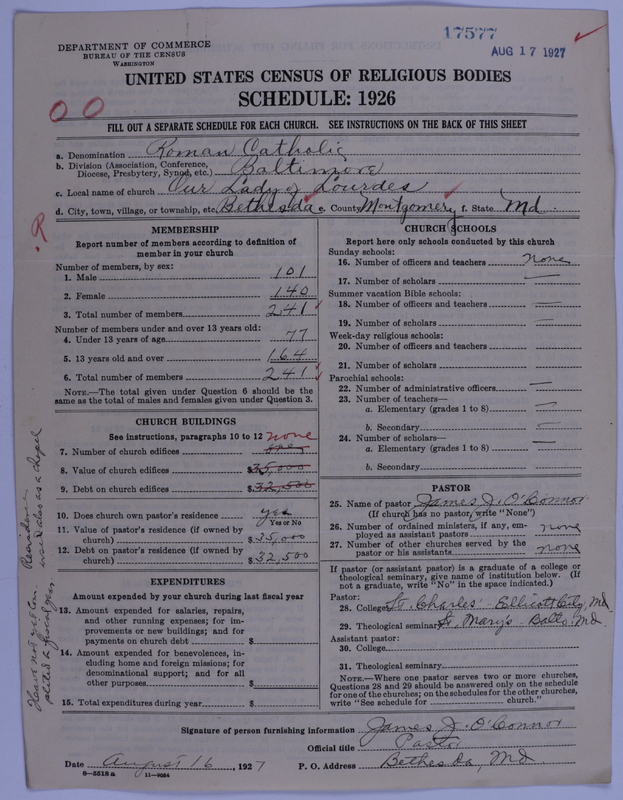 17577
AUG 17 1927
DEPARTMENT OF COMMERCE
BUREAU OF THE CENSUS
WASHINGTON
UNITED STATES CENSUS OF RELIGIOUS BODIES
SCHEDULE: 1926
00
FILL OUT A SEPARATE SCHEDULE FOR EACH CHURCH. SEE INSTRUCTIONS ON THE BACK OF THIS SHEET
a. Denomination Roman Catholic
b. Division (Association, Conference, Diocese, Presbytery, Synod, etc.) Baltimore
c. Local name of church Our Lady of Lourdes
d. City, town, village, or township, etc. Bethesda e. County Montgomery f. State Md.
R
MEMBERSHIP
Report number of members according to definition of
member in your church
Number of members, by sex:
1. Male 101
2. Female 140
3. Total number of members 241
Number of members under and over 13 years old:
4. Under 13 years of age 77
5. 13 years old and over 164
6. Total number of members 241
NOTE.—The total given under Question 6 should be the
same as the total of males and females given under Question 3.
CHURCH BUILDINGS
See instructions, paragraphs 10 to 12 none
7. Number of church edifices one
8. Value of church edifices $35,000
9. Debt on church edifices $32,500
10. Does church own pastor's residence yes
Yes or No
11. Value of pastor's residence (if owned by
church) $35,000
12. Debt on pastor's residence (if owned by
church) $32,500
EXPENDITURES
Amount expended by your church during last fiscal year
13. Amount expended for salaries, repairs,
and other running expenses; for im-
provements or new buildings; and for
payments on church debt $
14. Amount expended for benevolences, in-
cluding home and foreign missions; for
denominational support; and for all
other purposes $
15. Total expenditures during year $
Have not yet com
pleted a fiscal year
Residence
used also as a chapel
CHURCH SCHOOLS
Report here only schools conducted by this church
Sunday schools:
16. Number of officers and teachers none
17. Number of scholars
Summer vacation Bible schools:
18. Number of officers and teachers
19. Number of scholars
Week-day religious schools:
20. Number of officers and teachers
21. Number of scholars
Parochial schools:
22. Number of administrative officers
23. Number of teachers—
a. Elementary (grades 1 to 8)
b. Secondary
24. Number of scholars—
a. Elementary (grades 1 to 8)
b. Secondary
PASTOR
25. Name of pastor James J. O'Connor
(If church has no pastor, write "None")
26. Number of ordained ministers, if any, em-
ployed as assistant pastors none
27. Number of other churches served by the
pastor or his assistants none
If pastor (or assistant pastor) is a graduate of a college or
theological seminary, give name of institution below. (If
not a graduate, write "No" in the space indicated.)
Pastor:
28. College St. Charles - Ellicott City, Md.
29. Theological seminary St. Mary's - Balto. Md
Assistant pastor:
30. College
31. Theological seminary
NOTE.—Where one pastor serves two or more churches,
Questions 28 and 29 should be answered only on the schedule
for one of the churches; on the schedules for the other churches,
write "See schedule for church."
Signature of person furnishing information James J. O'Connor
Official title Pastor
Date August 16, 1927 P. O. Address Bethesda, Md
8—5518 a 11—9034